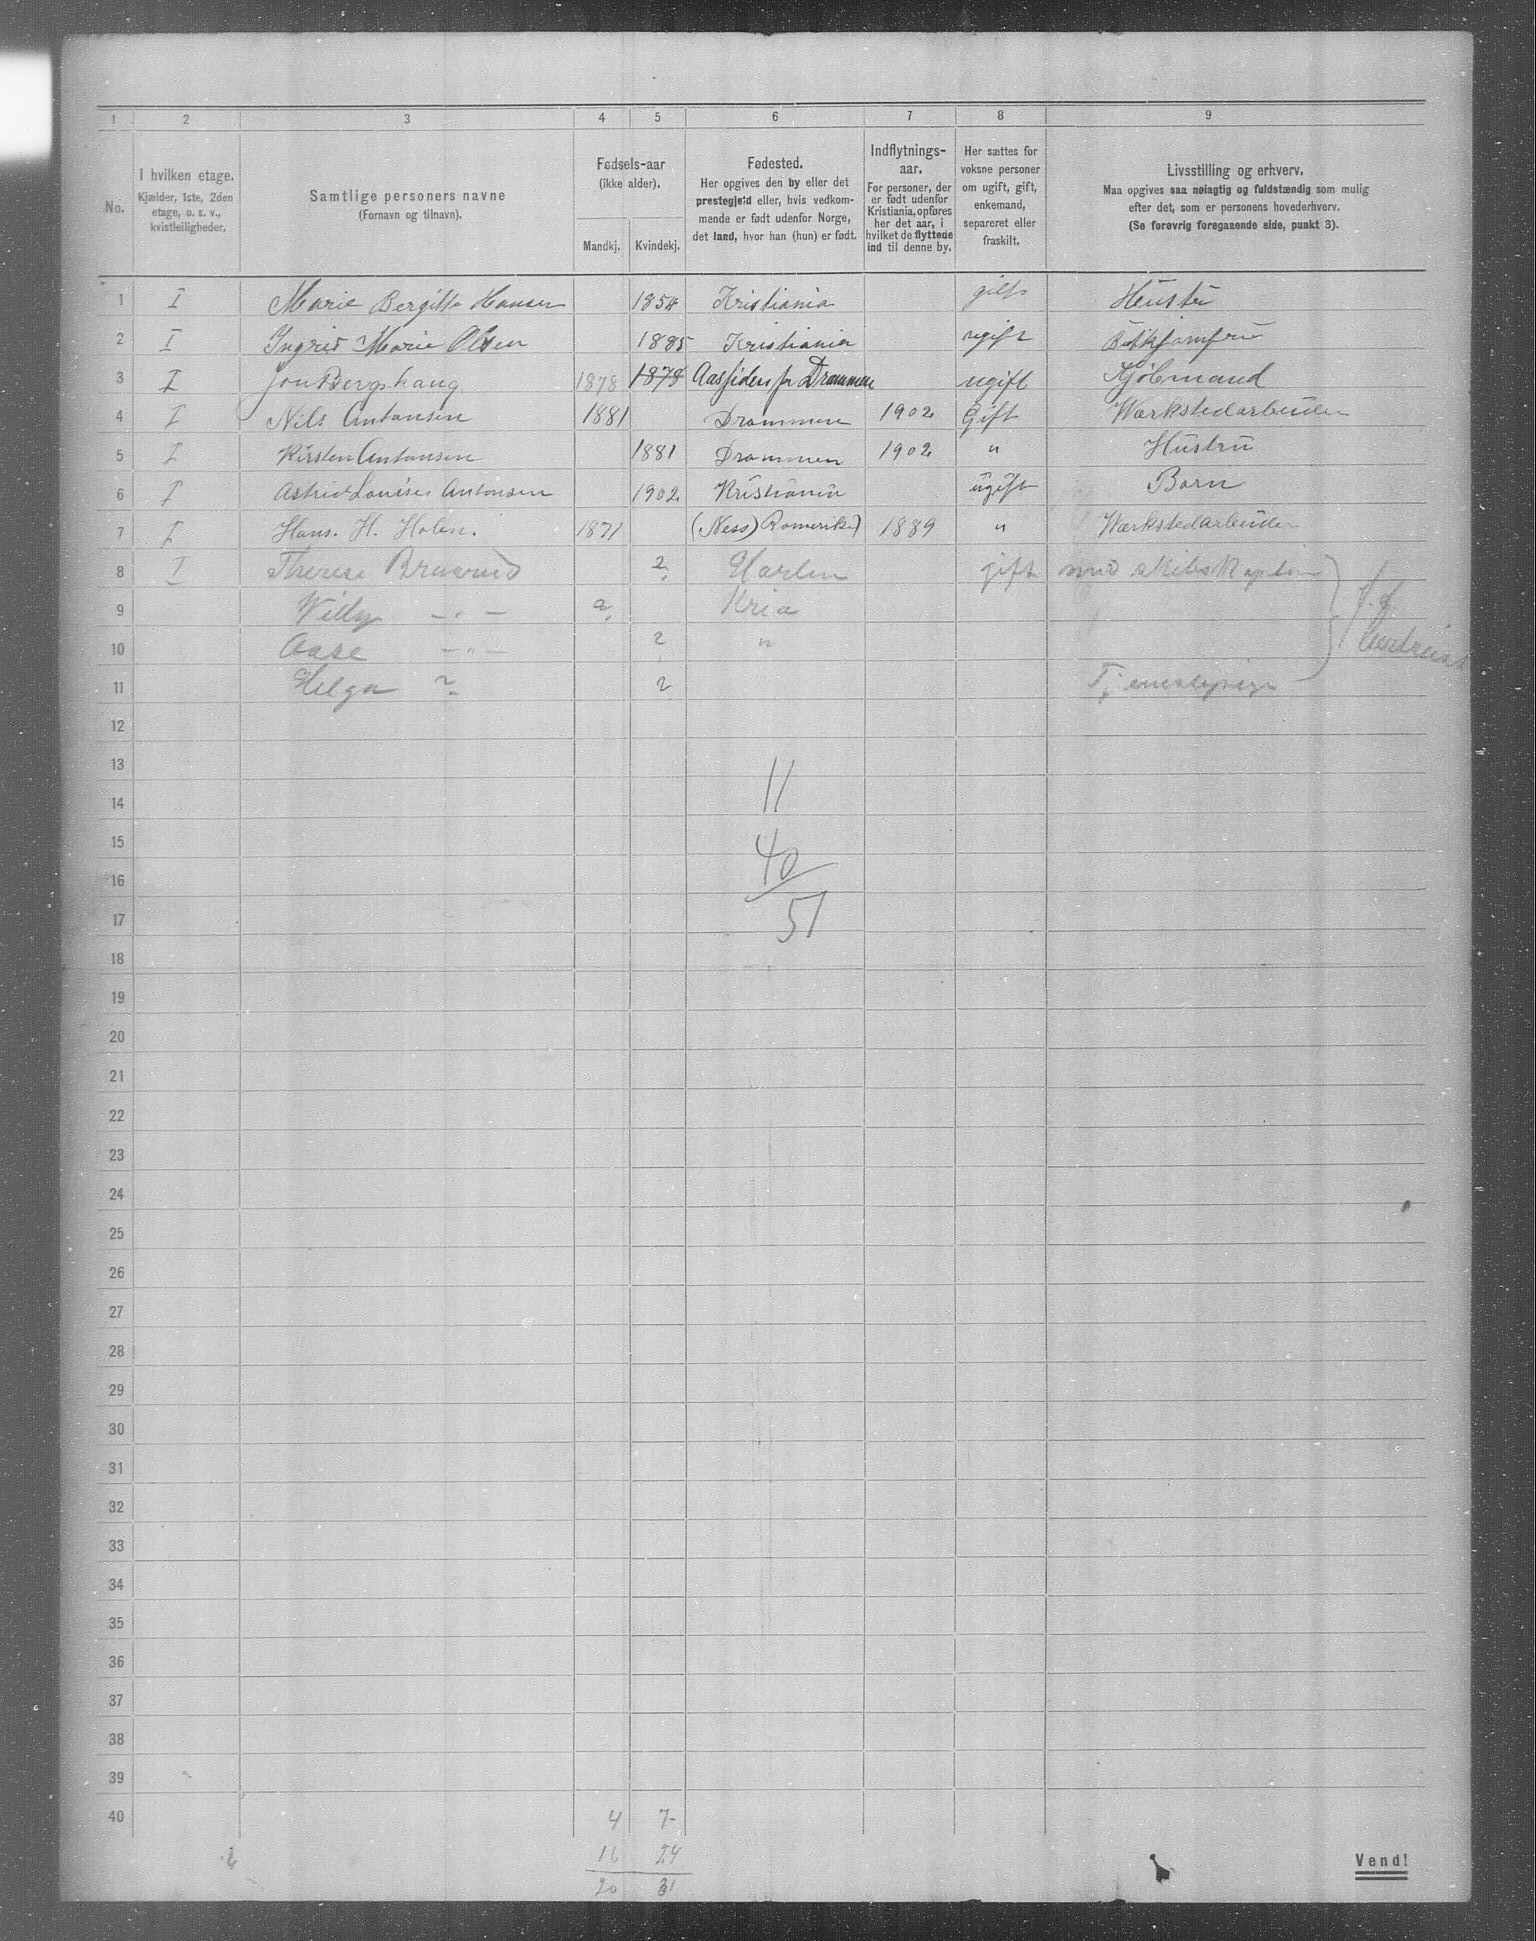 1 2 3 4 5 6 7 8 9
No.
I hvilken etage.
Kjælder, 1ste, 2den
etage, o. s. v.,
kvistleiligheder.
Samtlige personers navne
(Fornavn og tilnavn).
Fødsels-aar
(ikke alder).
Mandkj. Kvindekj.
Fødested.
Her opgives den by eller det
prestegjeld eller, hvis vedkom-
mende er født udenfor Norge,
det land, hvor han (hun) er født.
Indflytnings-
aar.
For personer, der
er født udenfor
Kristiania, opføres
her det aar, i
hvilket de flyttede
ind til denne by.
Her sættes for
voksne personer
om ugift, gift,
enkemand,
separeret eller
fraskilt.
Livsstilling og erhverv.
Maa opgives saa nøiagtig og fuldstændig som mulig
efter det, som er personens hovederhverv.
(Se forøvrig foregaaende side, punkt 3).
1 I Marie Bergitte Hansen 1854 Kristiania gift Hustru
2 I Ingrid Marie Olsen 1885 Kristiania ugift Butikjomfru
3 I Jon Bergshaug 1878 1878 Aassiden pr Drammen ugift Kjøbmand
4 I Nils Antonsen 1881 Drammen 1902 Gift Værkstedarbeider
5 I Kirsten Antonsen 1881 Drammen 1902 " Hustru
6 I Astrid Louise Antonsen 1902 Kristiania ugift Barn
7 I Hans. H. Holen. 1871 (Ness) Romerike) 1889 " Værkstedarbeider
8 I Therese ? gift med skibskaptein
9 Willy — " — ? Kria
10 Aase — " — ? "
11 Helga ? ? Tjenestepige
12
13
14
15
16
17
18
19
20
21
22
23
24
25
26
27
28
29
30
31
32
33
34
35
36
37
38
39
40
11
40
51
4 7
16 24
20 31
Vend!